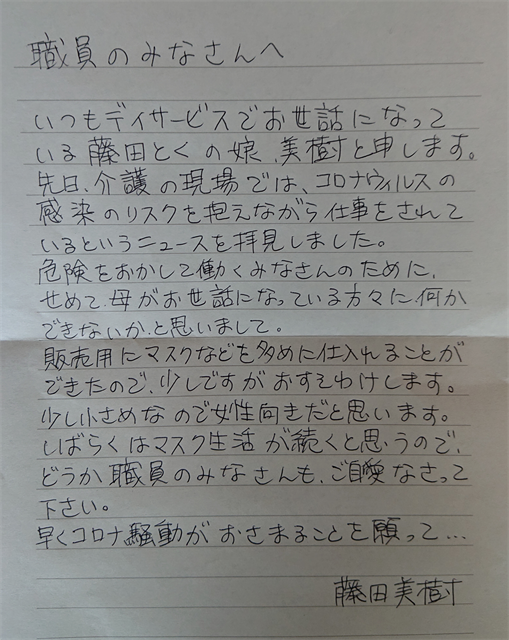 職員のみなさんへ
いつもデイサービスでお世話になって
いる藤田とくの娘、美樹と申します。
先日、介護の現場では、コロナウィルスの
感染のリスクを抱えながら仕事をされて
いるというニュースを拝見しました。
危険をおかして働くみなさんのために、
せめて母がお世話になっている方々に何か
できないか、と思いまして。
販売用にマスクなどを多めに仕入れることが
できたので、少しですがおすそわけします。
少し小さめなので女性向きだと思います。
しばらくはマスク生活が続くと思うので、
どうか職員のみなさんも、ご自愛なさって
下さい。
早くコロナ騒動がおさまることを願って…
藤田美樹